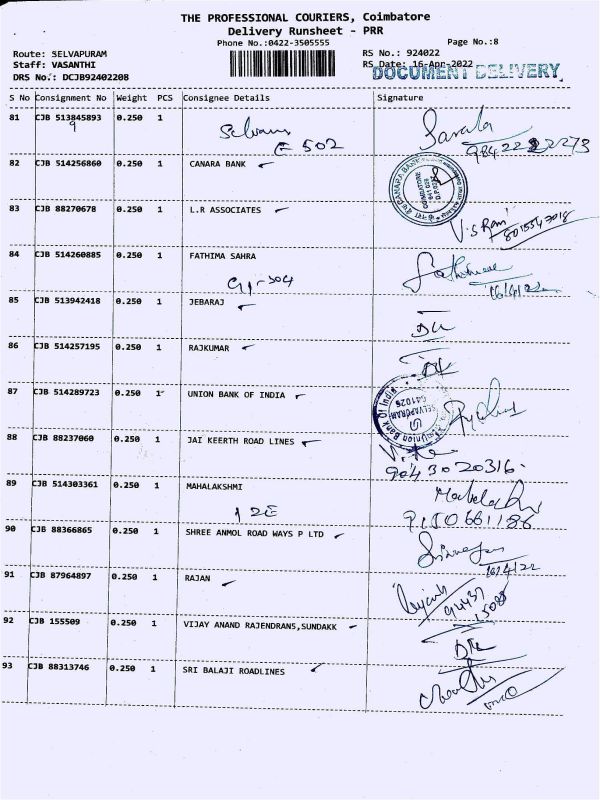 THE PROFESSIONAL COURIERS, Coimbatore
Delivery Runsheet - PRR
Phone No.:0422-3505555
Page No.:8
Route: SELVAPURAM
RS No.: 924022
Staff: VASANTHI
RS Date: 16-Apr-2022
DRS No.: DCJB92402208
DOCUMENT DELIVERY
S No Consignment No Weight PCS Consignee Details Signature
81 CJB 513845893 0.250 1
9
E 502
Sarala
82 CJB 514256860 0.250 1 CANARA BANK
83 CJB 88270678 0.250 1 L.R ASSOCIATES
V.S Ram
84 CJB 514260885 0.250 1 FATHIMA SAHRA
G1-304
Fathima
16/4/22
85 CJB 513942418 0.250 1 JEBARAJ
86 CJB 514257195 0.250 1 RAJKUMAR
87 CJB 514289723 0.250 1 UNION BANK OF INDIA
Union Bank Of India
SELVAPURAM
641026
88 CJB 88237060 0.250 1 JAI KEERTH ROAD LINES
9043020316
89 CJB 514303361 0.250 1 MAHALAKSHMI
12E
90 CJB 88366865 0.250 1 SHREE ANMOL ROAD WAYS P LTD
16/4/22
91 CJB 87964897 0.250 1 RAJAN
92 CJB 155509 0.250 1 VIJAY ANAND RAJENDRANS,SUNDAKK
93 CJB 88313746 0.250 1 SRI BALAJI ROADLINES